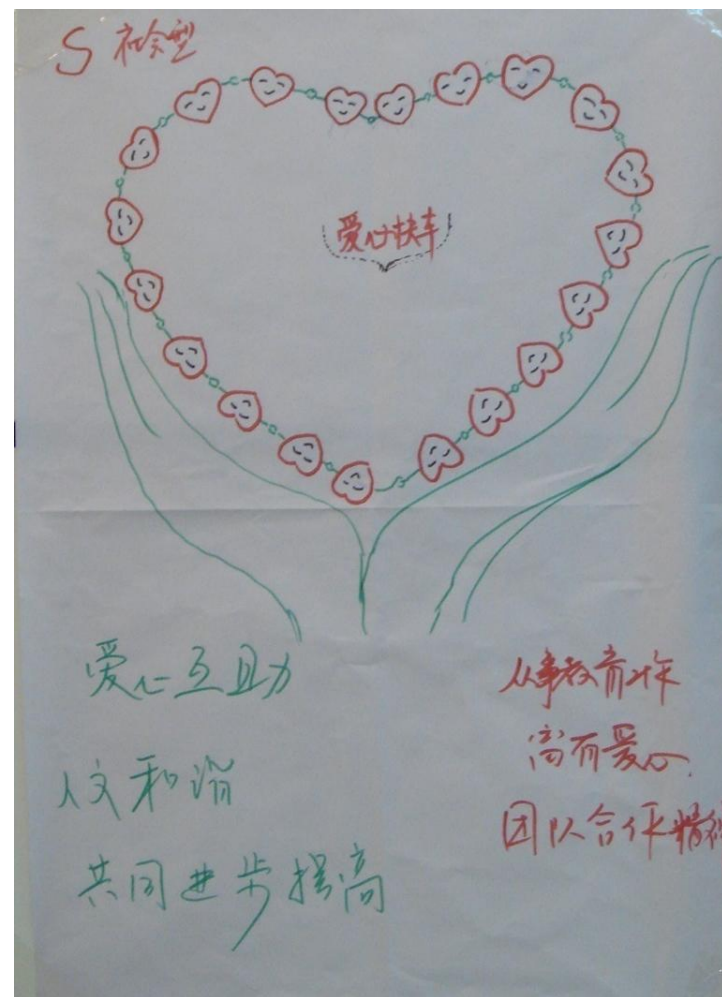 S 社会型
爱心快车
爱心互助
人文和谐
共同进步提高
从事教育工作
富有爱心.
团队合作精神